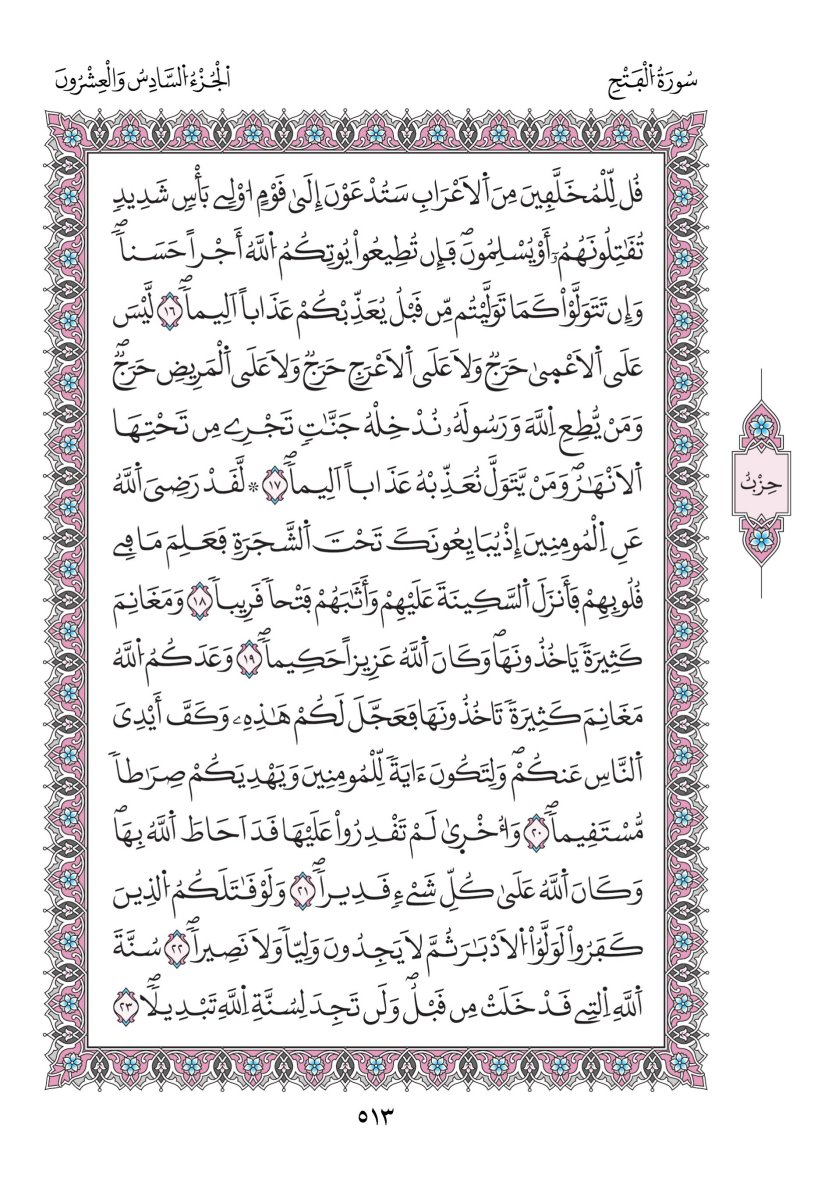 سُورَةُ اُ۬لْفَتْحِ
اَ۬لْجُزْءُ اُ۬لسَّادِسُ وَالْعِشْرُونَ
قُل لِّلْمُخَلَّفِينَ مِنَ اَ۬لَاعْرَابِ سَتُدْعَوْنَ إِلَىٰ قَوْمٍ ا۟وْلِے بَأْسٖ شَدِيدٖ
تُقَٰتِلُونَهُمُۥٓ أَوْ يُسْلِمُونَۖ فَإِن تُطِيعُواْ يُوتِكُمُ اُ۬للَّهُ أَجْراً حَسَناٗۖ
وَإِن تَتَوَلَّوْاْ كَمَا تَوَلَّيْتُم مِّن قَبْلُ يُعَذِّبْكُمْ عَذَاباً اَلِيماٗۖ ١٦ لَّيْسَ
عَلَى اَ۬لَاعْمۭيٰ حَرَجٞ وَلَا عَلَى اَ۬لَاعْرَجِ حَرَجٞ وَلَا عَلَى اَ۬لْمَرِيضِ حَرَجٞۖ
وَمَنْ يُّطِعِ اِ۬للَّهَ وَرَسُولَهُۥ نُدْخِلْهُ جَنَّٰتٖ تَجْرِے مِن تَحْتِهَا
اَ۬لَانْهَٰرُۖ وَمَنْ يَّتَوَلَّ نُعَذِّبْهُ عَذَاباً اَلِيماٗۖ ١٧ ۞ لَّقَدْ رَضِيَ اَ۬للَّهُ
عَنِ اِ۬لْمُومِنِينَ إِذْ يُبَايِعُونَكَ تَحْتَ اَ۬لشَّجَرَةِ فَعَلِمَ مَا فِے
قُلُوبِهِمْ فَأَنزَلَ اَ۬لسَّكِينَةَ عَلَيْهِمْ وَأَثَٰبَهُمْ فَتْحاٗ قَرِيباٗ ١٨ وَمَغَانِمَ
كَثِيرَةٗ يَاخُذُونَهَاۖ وَكَانَ اَ۬للَّهُ عَزِيزاً حَكِيماٗۖ ١٩ وَعَدَكُمُ اُ۬للَّهُ
مَغَانِمَ كَثِيرَةٗ تَاخُذُونَهَا فَعَجَّلَ لَكُمْ هَٰذِهِۦ وَكَفَّ أَيْدِيَ
اَ۬لنَّاسِ عَنكُمْۖ وَلِتَكُونَ ءَايَةٗ لِّلْمُومِنِينَ وَيَهْدِيَكُمْ صِرَٰطاٗ
مُّسْتَقِيماٗۖ ٢٠ وَأُخْر۪يٰ لَمْ تَقْدِرُواْ عَلَيْهَا قَدَ اَحَاطَ اَ۬للَّهُ بِهَاۖ
وَكَانَ اَ۬للَّهُ عَلَىٰ كُلِّ شَےْءٖ قَدِيراٗۖ ٢١ وَلَوْ قَٰتَلَكُمُ اُ۬لذِينَ
كَفَرُواْ لَوَلَّوُاْ اُ۬لَادْبَٰرَ ثُمَّ لَا يَجِدُونَ وَلِيّاٗ وَلَا نَصِيراٗۖ ٢٢ سُنَّةَ
اَ۬للَّهِ اِ۬لتِے قَدْ خَلَتْ مِن قَبْلُۖ وَلَن تَجِدَ لِسُنَّةِ اِ۬للَّهِ تَبْدِيلاٗۖ ٢٣
حِزْبٌ
٥١٣